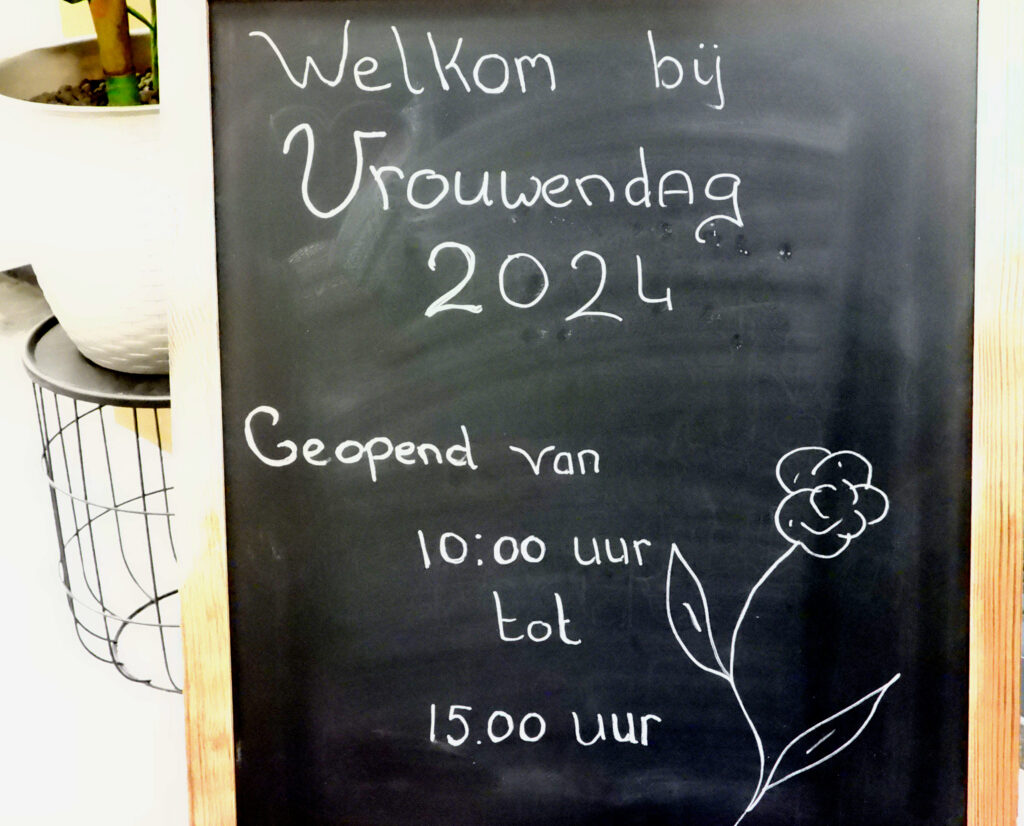 Welkom bij
Vrouwendag
2024
Geopend van
10:00 uur
tot
15.00 uur